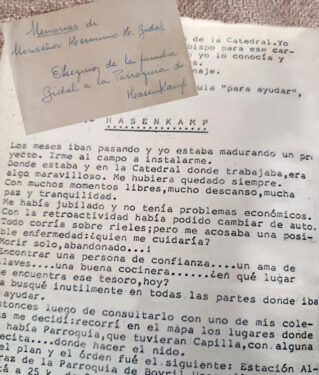 Memorias de
Monseñor Herminio H. Bidal
Obsequio de la familia
Bidal a la Parroquia de
Hasenkamp
de la Catedral. Yo
ispo para ese car-
yo lo conocía y
s.
naje.
uia "para ayudar",
HASENKAMP
Los meses iban pasando y yo estaba madurando un pro
yecto. Irme al campo a instalarme.
Donde estaba y en la Catedral donde trabajaba, era
algo maravilloso. Me hubiera quedado siempre.
Con muchos momentos libres, mucho descanso, mucha
paz y tranquilidad.
Me había jubilado y no tenía problemas económicos.
Con la retroactividad había podido cambiar de auto.
Todo corría sobre rieles; pero me acosaba una posi-
ble enfermedad: ¿quien me cuidaría?
Morir solo, abandonado...!
Encontrar una persona de confianza....un ama de
llaves....una buena cocinera......¿en qué lugar
se encuentra ese tesoro, hoy?
a busqué inutilmente en todas las partes donde iba
ayudar.
ntonces luego de consultarlo con uno de mis cole-
as me decidí: recorrí en el mapa los lugares donde
había Parroquia, que tuvieran Capilla, con alguna
ecita....donde hacer el nido.
el plan y el órden fué el siguiente: Estación Al-
raz de la Parroquia de Bovril
tá a 25 k